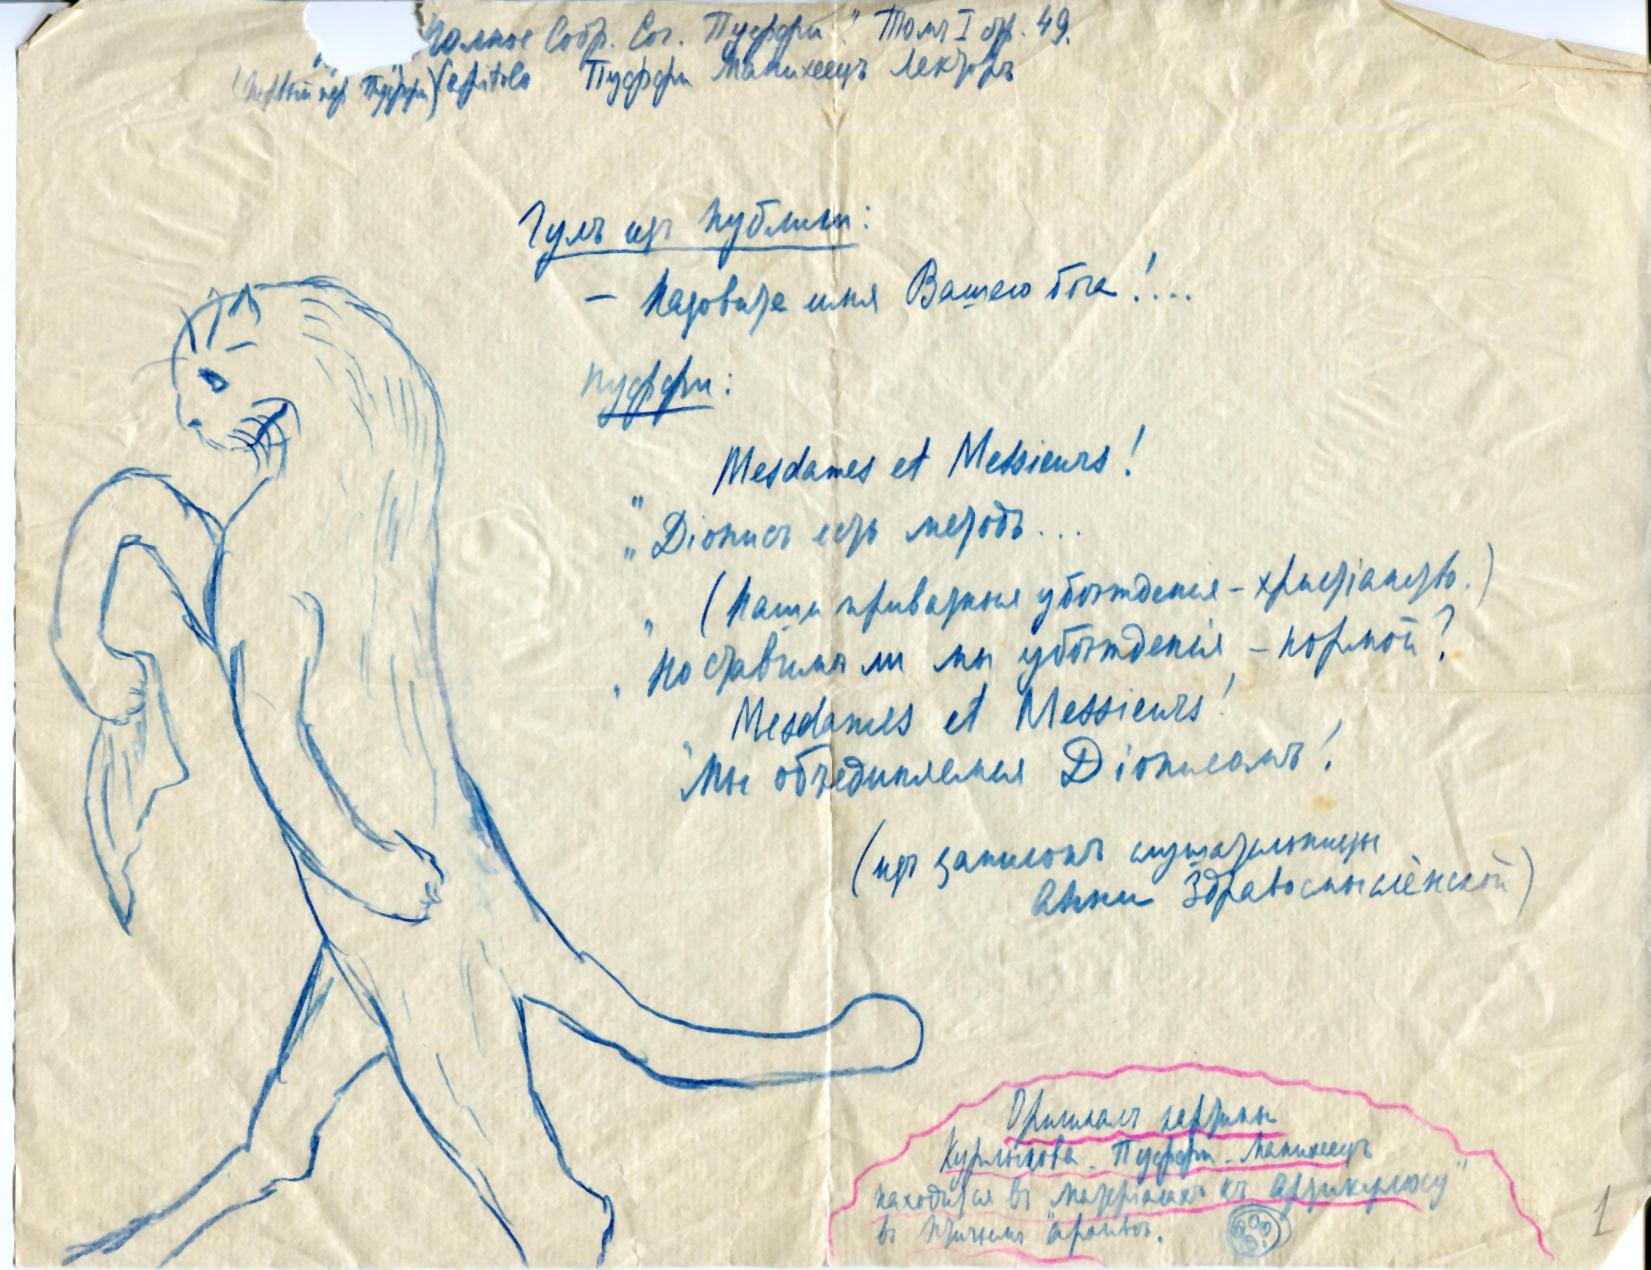 Полное Собр. Соч. Пуффи." Томъ I стр. 49.
(Первый пер. Пуффи) Capitolo Пуффи Манихеецъ Лекторъ
Гулъ изъ публики:
— Назовите имя Вашего бога!...
Пуффи:
Mesdames et Messieurs!
" Діонисъ есть методъ...
" (Наши приватныя убѣжденія – христіанство.)
" Но ставимъ ли мы убѣжденія – нормой?
Mesdames et Messieurs!
" Мы объединяемся Діонисомъ!
(изъ записокъ слушательницы
Анны Здравосмыслёнской)
Оригиналъ картины
Курлыкова "Пуффи-Манихеецъ
находится въ матеріалахъ къ Артикулюсу"
въ Птичьемъ архивѣ.
1